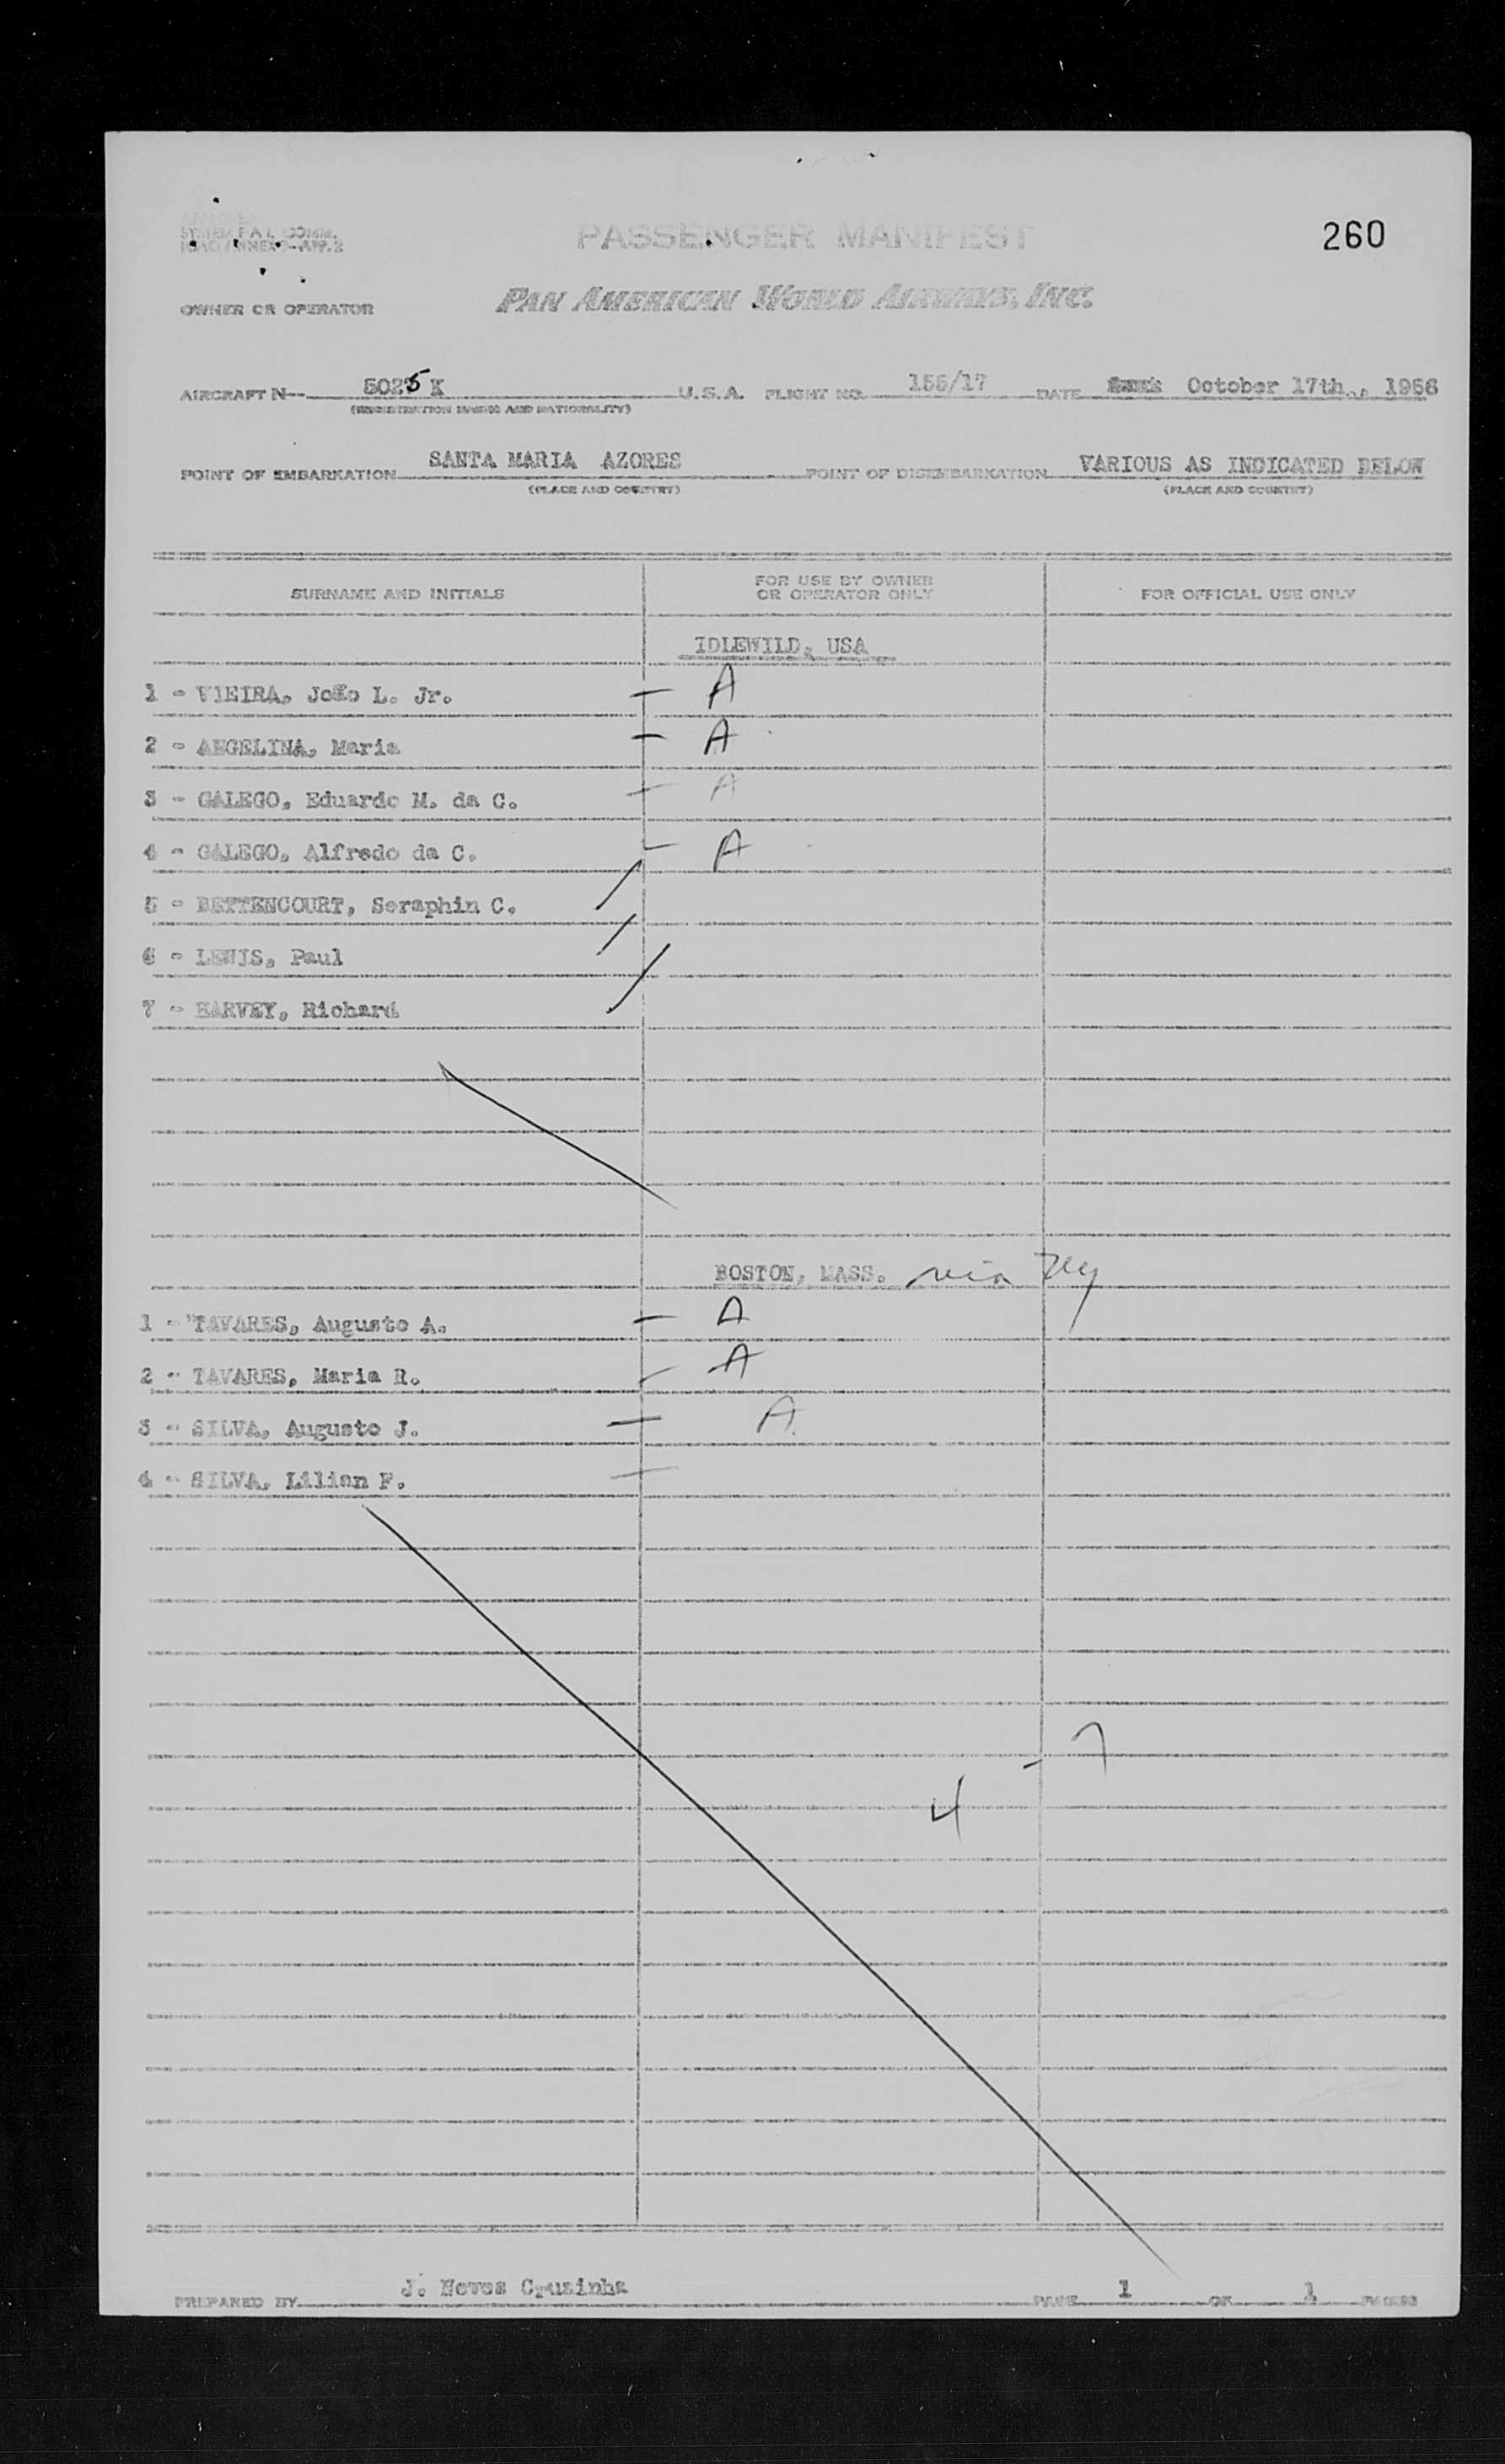 SYSTEM F.A.L. COMM.
PASSENGER MANIFEST
260
OWNER OR OPERATOR PAN AMERICAN WORLD AIRWAYS, INC.
AIRCRAFT N-- 5025 K U.S.A. FLIGHT NO. 155/17 DATE October 17th., 1956
(REGISTRATION MARKS AND NATIONALITY)
POINT OF EMBARKATION SANTA MARIA AZORES POINT OF DISEMBARKATION VARIOUS AS INDICATED BELOW
(PLACE AND COUNTRY) (PLACE AND COUNTRY)
SURNAME AND INITIALS FOR USE BY OWNER OR OPERATOR ONLY FOR OFFICIAL USE ONLY
IDLEWILD, USA
1 - VIEIRA, João L. Jr. — A
2 - ANGELINA, Maria — A
3 - GALEGO, Eduardo M. da C. — A
4 - GALEGO, Alfredo da C. — A
5 - BETTENCOURT, Seraphin C. /
6 - LEWIS, Paul /
7 - HARVEY, Richard /
BOSTON, MASS. via
1 - TAVARES, Augusto A. — A
2 - TAVARES, Maria R. — A
3 - SILVA, Augusto J. — A
4 - SILVA, Lilian F. —
4 - 7
PREPARED BY J. PAGE 1 OF 1 PAGES